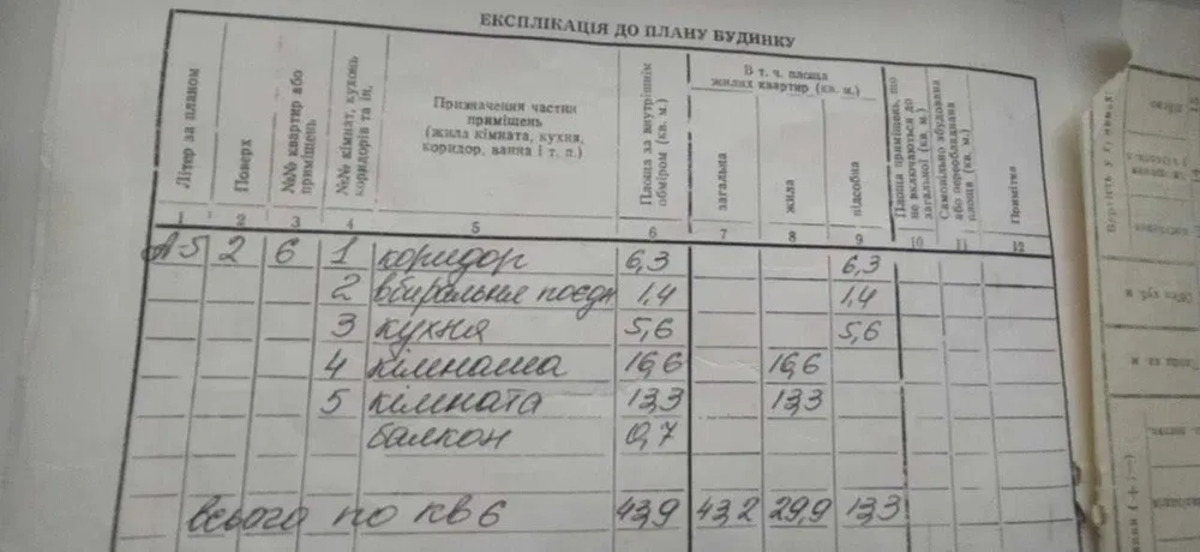 ЕКСПЛІКАЦІЯ ДО ПЛАНУ БУДИНКУ
Літер за планом
Поверх
№№ квартир або приміщень
№№ кімнат, кухонь коридорів та ін.
Призначення частин
приміщень
(жила кімната, кухня,
коридор, ванна і т. п.)
Площа за внутрішнім обміром (кв. м.)
В т. ч. площа
жилих квартир (кв. м.)
загальна
жила
підсобна
Площа приміщень, що не включаються до загальної (кв. м.)
Самовільно збудована або переобладнана площа (кв. м.)
Примітка
1 2 3 4 5 6 7 8 9 10 11 12
А-5 2 6 1 коридор 6,3 6,3
2 вбиральня поєдн 1,4 1,4
3 кухня 5,6 5,6
4 кімната 16,6 16,6
5 кімната 13,3 13,3
балкон 0,7
всього по кв 6 43,9 43,2 29,9 13,3